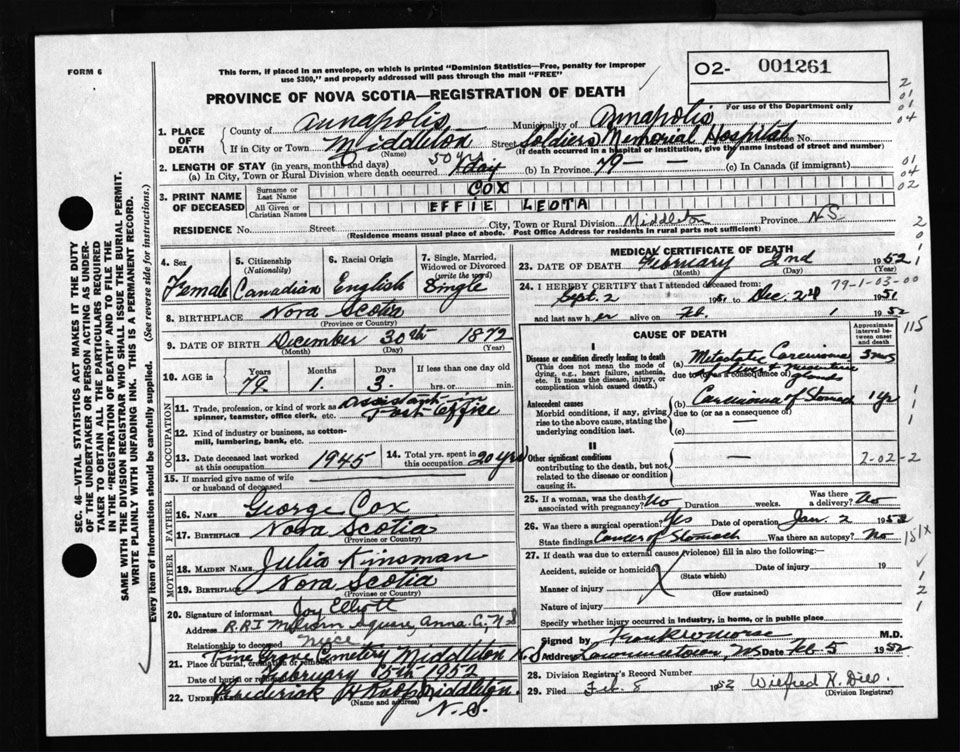 FORM 6
This form, if placed in an envelope, on which is printed "Dominion Statistics—Free, penalty for improper
use $300," and properly addressed will pass through the mail "FREE"
O2- 001261
For use of the Department only
PROVINCE OF NOVA SCOTIA—REGISTRATION OF DEATH
2
01
01
04
1. PLACE OF DEATH
County of Annapolis Municipality of Annapolis
If in City or Town Middleton Street Soldiers Memorial Hospital House No.
(Name) (If death occurred in a hospital or institution, give the name instead of street and number)
2. LENGTH OF STAY (in years, months and days)
(a) In City, Town or Rural Division where death occurred 50 yrs 1 day (b) In Province 79 — — (c) In Canada (if immigrant)
01
04
02
3. PRINT NAME OF DECEASED
Surname or Last Name COX
All Given or Christian Names EFFIE LEOTA
RESIDENCE No. Street City, Town or Rural Division Middleton Province N.S
(Residence means usual place of abode. Post Office Address for residents in rural parts not sufficient)
4. Sex Female
5. Citizenship (Nationality) Canadian
6. Racial Origin English
7. Single, Married, Widowed or Divorced (write the word) Single
8. BIRTHPLACE Nova Scotia
(Province or Country)
9. DATE OF BIRTH December 30th 1872
(Month) (Day) (Year)
10. AGE in Years 79 Months 1 Days 3 If less than one day old
hrs. or min.
OCCUPATION
11. Trade, profession, or kind of work as spinner, teamster, office clerk, etc. Assistant in Post Office
12. Kind of industry or business, as cotton-mill, lumbering, bank, etc.
13. Date deceased last worked at this occupation 1945
14. Total yrs. spent in this occupation 20 yrs
15. If married give name of wife or husband of deceased
FATHER
16. NAME George Cox
17. BIRTHPLACE Nova Scotia
(Province or Country)
MOTHER
18. MAIDEN NAME Julia Kinsman
19. BIRTHPLACE Nova Scotia
(Province or Country)
20. Signature of informant Joy Elliott
Address R.R.1 Melvern Square, Anna. Co, N S
Relationship to deceased Niece
21. Place of burial, cremation or removal Pine Grove Cemetery Middleton N.S
Date of burial or removal February 5th 1952
22. Undertaker Frederick Middleton N.S.
(Name and address)
MEDICAL CERTIFICATE OF DEATH
23. DATE OF DEATH February 2nd 1952
(Month) (Day) (Year)
24. I HEREBY CERTIFY that I attended deceased from: 79-1-03-00
Sept. 2 1951 to Dec. 24 1951
and last saw her alive on Feb. 1 1952
CAUSE OF DEATH
Approximate interval between onset and death
115
I
Disease or condition directly leading to death
(This does not mean the mode of dying, e.g., heart failure, asthenia, etc. It means the disease, injury, or complication which caused death.)
(a) Metastatic Carcinoma 3 mos
due to (or as a consequence of) of liver & mesenteric glands
Antecedent causes
Morbid conditions, if any, giving rise to the above cause, stating the underlying condition last.
(b) Carcinoma of Stomach 1 yr
due to (or as a consequence of)
(c)
II
Other significant conditions
contributing to the death, but not related to the disease or condition causing it.
2-02-2
25. If a woman, was the death associated with pregnancy? No Duration weeks. Was there a delivery? No
26. Was there a surgical operation? Yes Date of operation Jan. 2 195
State findings Cancer of Stomach Was there an autopsy? No
151X
27. If death was due to external causes (violence) fill in also the following:—
Accident, suicide or homicide? Date 19
(State which)
Manner of injury
(How sustained)
Nature of injury
Specify whether injury occurred in industry, in home, or in public place
Signed by Frank Morse M.D.
Address Lawrencetown, NS Date Feb. 5 1952
28. Division Registrar's Record Number
29. Filed Feb. 8 1952 Wilfred
(Division Registrar)
SEC. 46—VITAL STATISTICS ACT MAKES IT THE DUTY
OF THE UNDERTAKER OR PERSON ACTING AS UNDER-
TAKER TO OBTAIN ALL THE PARTICULARS REQUIRED
IN THE "REGISTRATION OF DEATH" AND TO FILE THE
SAME WITH THE DIVISION REGISTRAR WHO SHALL ISSUE THE BURIAL PERMIT.
WRITE PLAINLY WITH UNFADING INK. THIS IS A PERMANENT RECORD.
Every item of information should be carefully supplied. (See reverse side for instructions.)